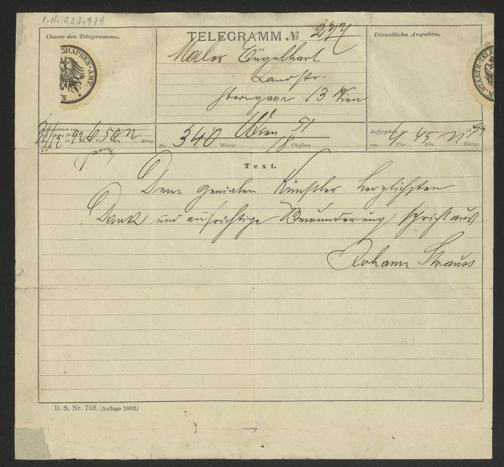 I.N. 223.979
Classe des Telegramms.
TELEGRAMM № 277
Dienstliche Angaben.
Maler Engelhart
Landstr.
Sterngasse 13 Wien
Nr. 340 Wien 51
Aufgegeben
Text.
Dem genialen Künstler herzlichsten
Dank und aufrichtige Bewunderung spricht aus
Johann Strauss
D. S. Nr. 759. (Auflage 1892.)